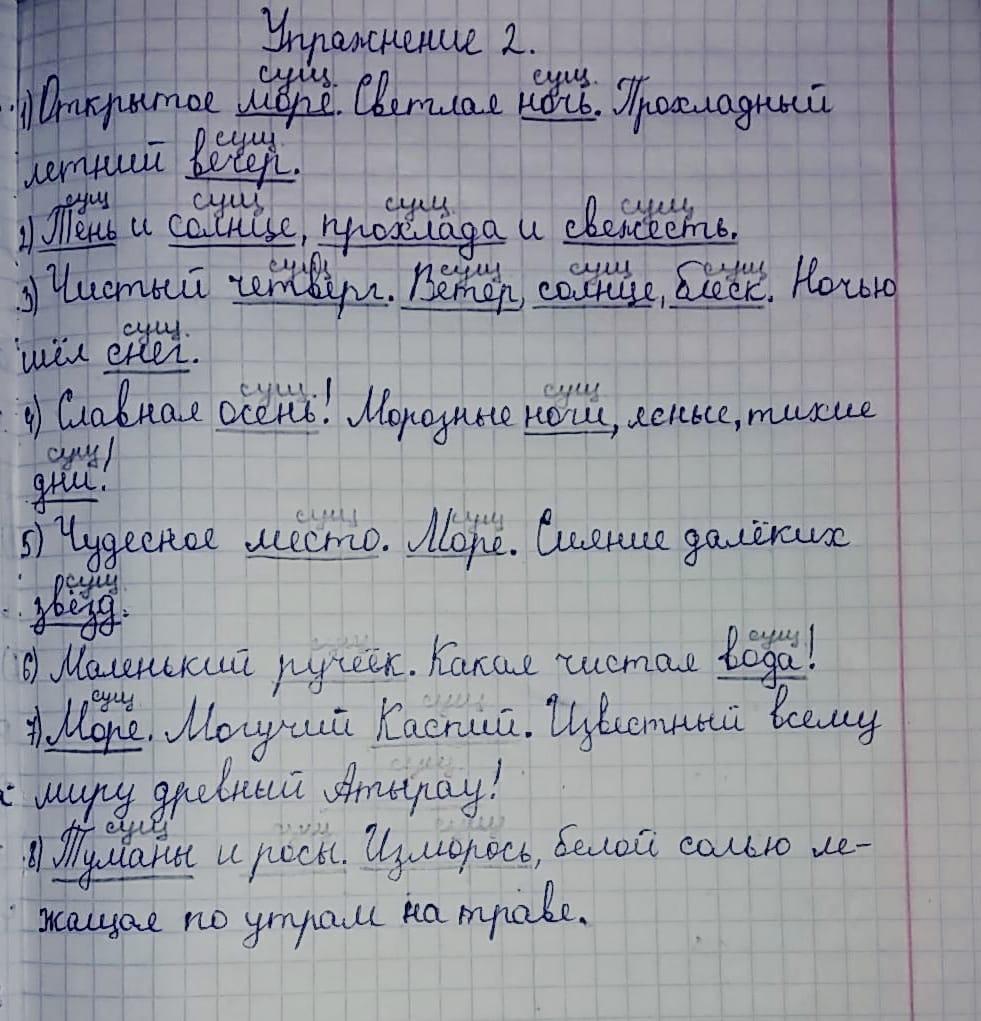 Упражнение 2.
сущ. сущ.
1) Открытое море. Светлая ночь. Прохладный
сущ.
летний вечер.
сущ сущ сущ. сущ
2) Тень и солнце, прохлада и свежесть.
сущ сущ сущ сущ
3) Чистый четверг. Ветер, солнце, блеск. Ночью
сущ.
шёл снег.
сущ. сущ
4) Славная осень! Морозные ночи, ясные, тихие
сущ
дни!
сущ сущ
5) Чудесное место. Море. Сияние далёких
сущ.
звёзд.
сущ сущ
6) Маленький ручеёк. Какая чистая вода!
сущ сущ
7) Море. Могучий Каспий. Известный всему
сущ.
миру древний Атырау!
сущ сущ сущ
8) Туманы и росы. Изморось, белой солью ле-
жащая по утрам на траве.